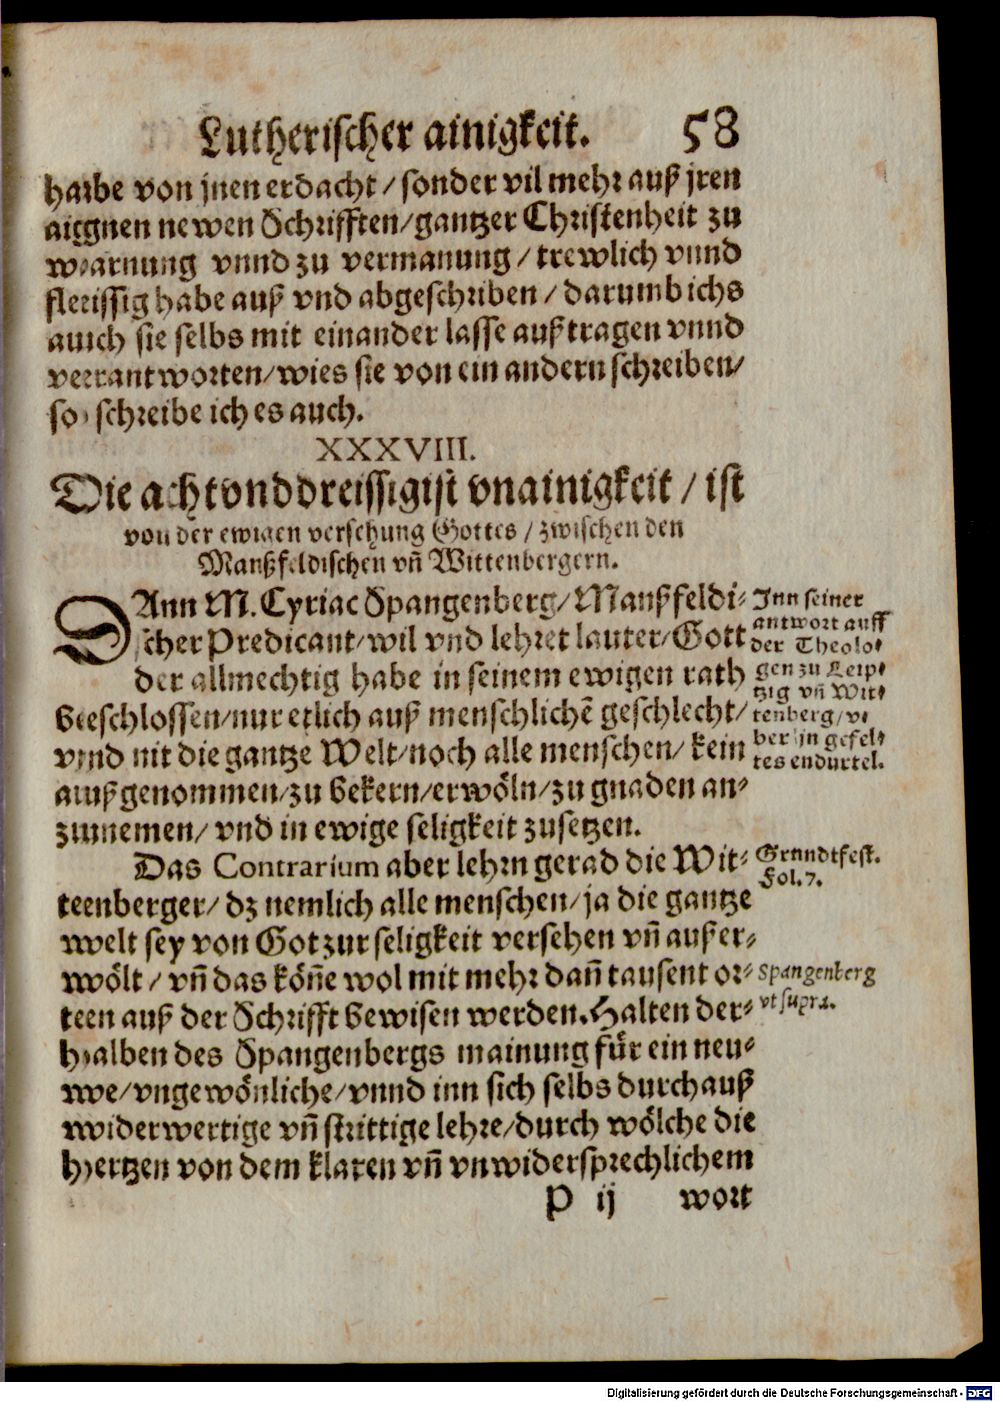 Lutherischer ainigkeit. 58
habe von jnen erdacht / sonder vil mehr auß jren
aignen newen Schrifften / gantzer Christenheit zu
warnung vnnd zu vermanung / trewlich vnnd
fleissig habe auß vnd abgeschriben / darumb ichs
auch sie selbs mit einander lasse außtragen vnnd
verantworten / wies sie von ein andern schreiben /
so schreibe ich es auch.
XXXVIII.
Die achtvnddreissigist vnainigkeit / ist
von der ewigen versehung Gottes / zwischen den
Manßfeldischen vñ Wittenbergern.
DAnn M. Cyriac Spangenberg / Manßfeldi⸗
scher Predicant / wil vnd lehret lauter / Gott
der allmechtig habe in seinem ewigen rath
beschlossen / nur etlich auß menschlichẽ geschlecht /
vnd nit die gantze Welt / noch alle menschen / kein
außgenommen / zu bekern / erwöln / zu gnaden an⸗
zunemen / vnd in ewige seligkeit zusetzen.
Inn seiner
antwort auff
der Theolo⸗
gen zu Leip⸗
tzig vñ Wit⸗
tenberg / v⸗
ber jn gefel⸗
tes endurtel.
Das Contrarium aber lehrn gerad die Wit⸗
tenberger / dz nemlich alle menschen / ja die gantze
welt sey von Got zur seligkeit versehen vñ außer⸗
wölt / vñ das köñe wol mit mehr dañ tausent or⸗
ten auß der Schrifft bewisen werden. Halten der⸗
halben des Spangenbergs mainung für ein neu⸗
we / vngewönliche / vnnd inn sich selbs durchauß
widerwertige vñ strittige lehre / durch wölche die
hertzen von dem klaren vñ vnwidersprechlichem
Grundtfest.
Fol. 7.
Spangenberg
vt supra.
P ij wort
Digitalisierung gefördert durch die Deutsche Forschungsgemeinschaft - DFG